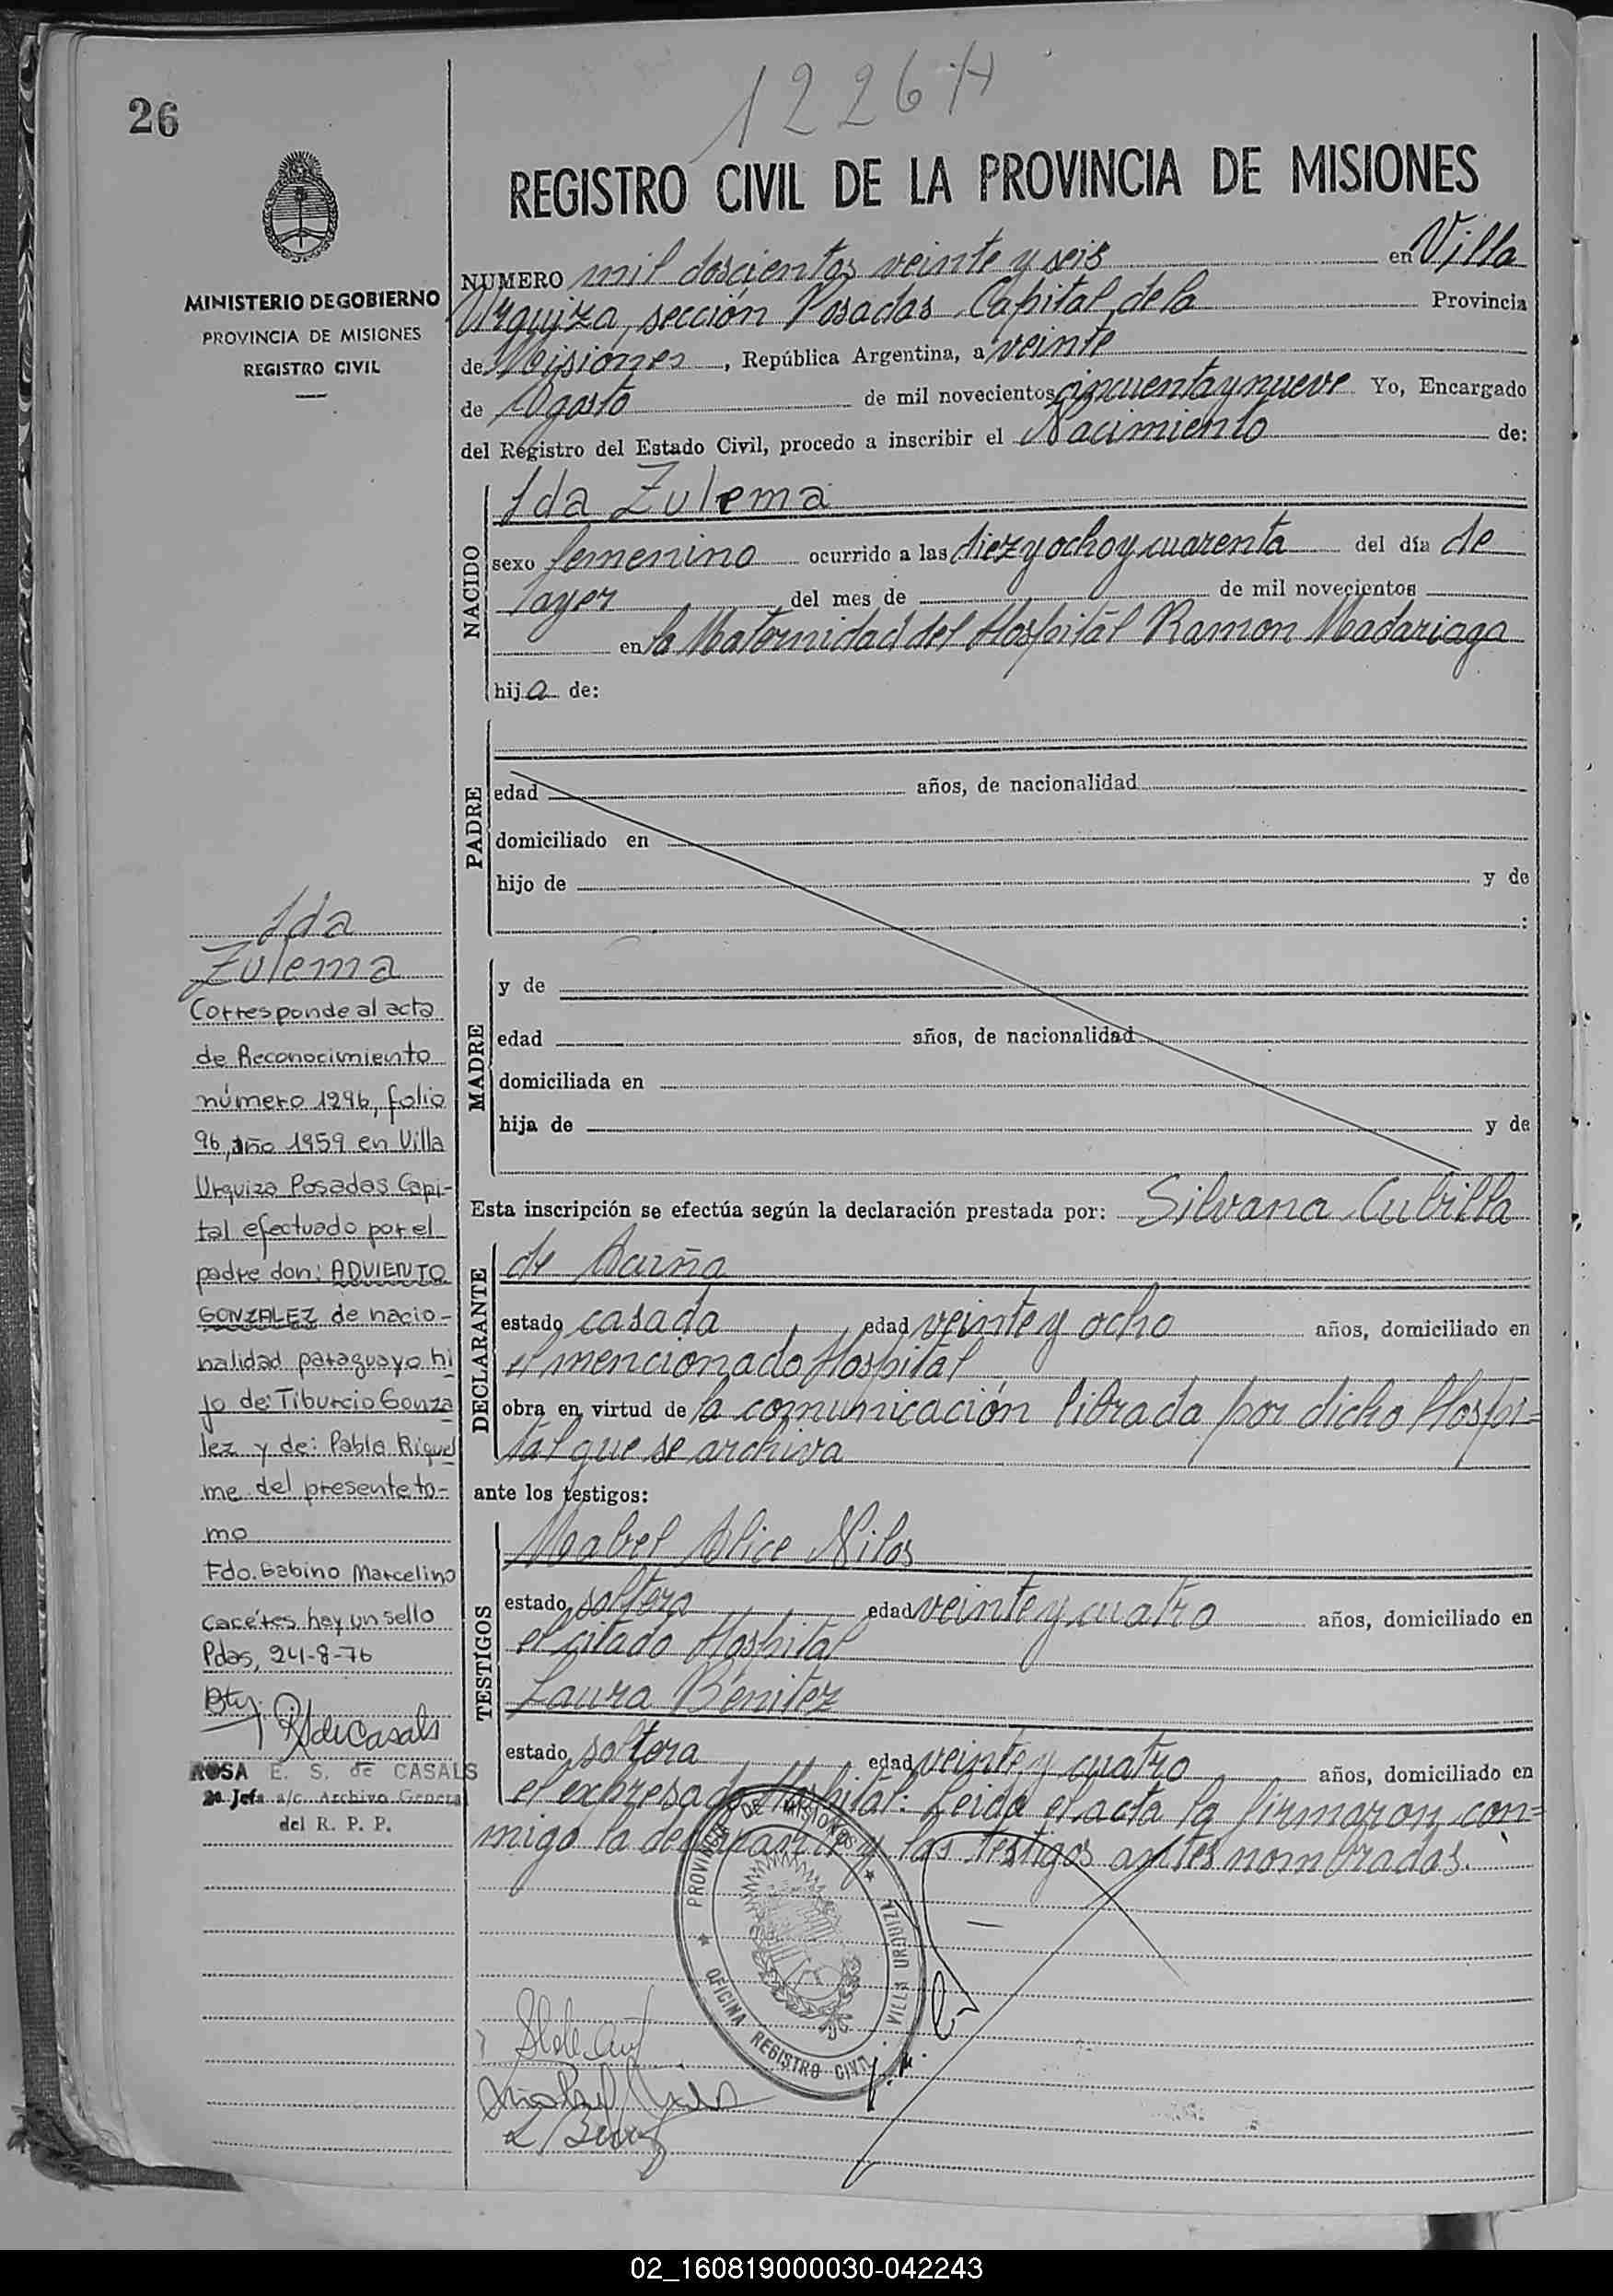 26
1226H
MINISTERIO DE GOBIERNO
PROVINCIA DE MISIONES
REGISTRO CIVIL
REGISTRO CIVIL DE LA PROVINCIA DE MISIONES
NUMERO mil doscientos veinte y seis en Villa
Urquiza, sección Posadas Capital de la Provincia
de Misiones, República Argentina, a veinte
de Agosto de mil novecientos cincuenta y nueve Yo, Encargado
del Registro del Estado Civil, procedo a inscribir el Nacimiento de:
NACIDO
Ida Zulema
sexo femenino ocurrido a las diez y ocho y cuarenta del día de
ayer del mes de de mil novecientos
en la Maternidad del Hospital Ramon Madariaga
hija de:
PADRE
edad años, de nacionalidad
domiciliado en
hijo de y de
:
MADRE
y de
edad años, de nacionalidad
domiciliada en
hija de y de
Esta inscripción se efectúa según la declaración prestada por: Silvana Cubilla
DECLARANTE
de
estado casada edad veinte y ocho años, domiciliado en
el mencionado Hospital
obra en virtud de la comunicación librada por dicho Hospi=
tal que se archiva
ante los testigos:
TESTIGOS
Mabel Alice Nilos
estado soltera edad veinte y cuatro años, domiciliado en
el citado Hospital
Laura Benitez
estado soltera edad veinte y cuatro años, domiciliado en
el expresado Hospital: Leida el acta la firmaron con=
migo la declarante y las testigos antes nombradas.
Ida
Zulema
Corresponde al acta
de Reconocimiento
número 1296, folio
96, año 1959 en Villa
Urquiza Posadas Capi-
tal efectuado por el
padre don: ADVIENTO
GONZALEZ de nacio-
nalidad paraguayo hi
jo de: Tiburcio Gonza
lez y de: Pabla Riquel
me del presente to-
mo
Fdo. Gabino Marcelino
Cacéres hay un sello
Pdas, 24-8-76
RSdeCasals
ROSA E. S. de CASALS
2ª Jefa a/c. Archivo General
del R. P. P.
PROVINCIA DE MISIONES
OFICINA REGISTRO CIVIL
VILLA URQUIZA
02_160819000030-042243